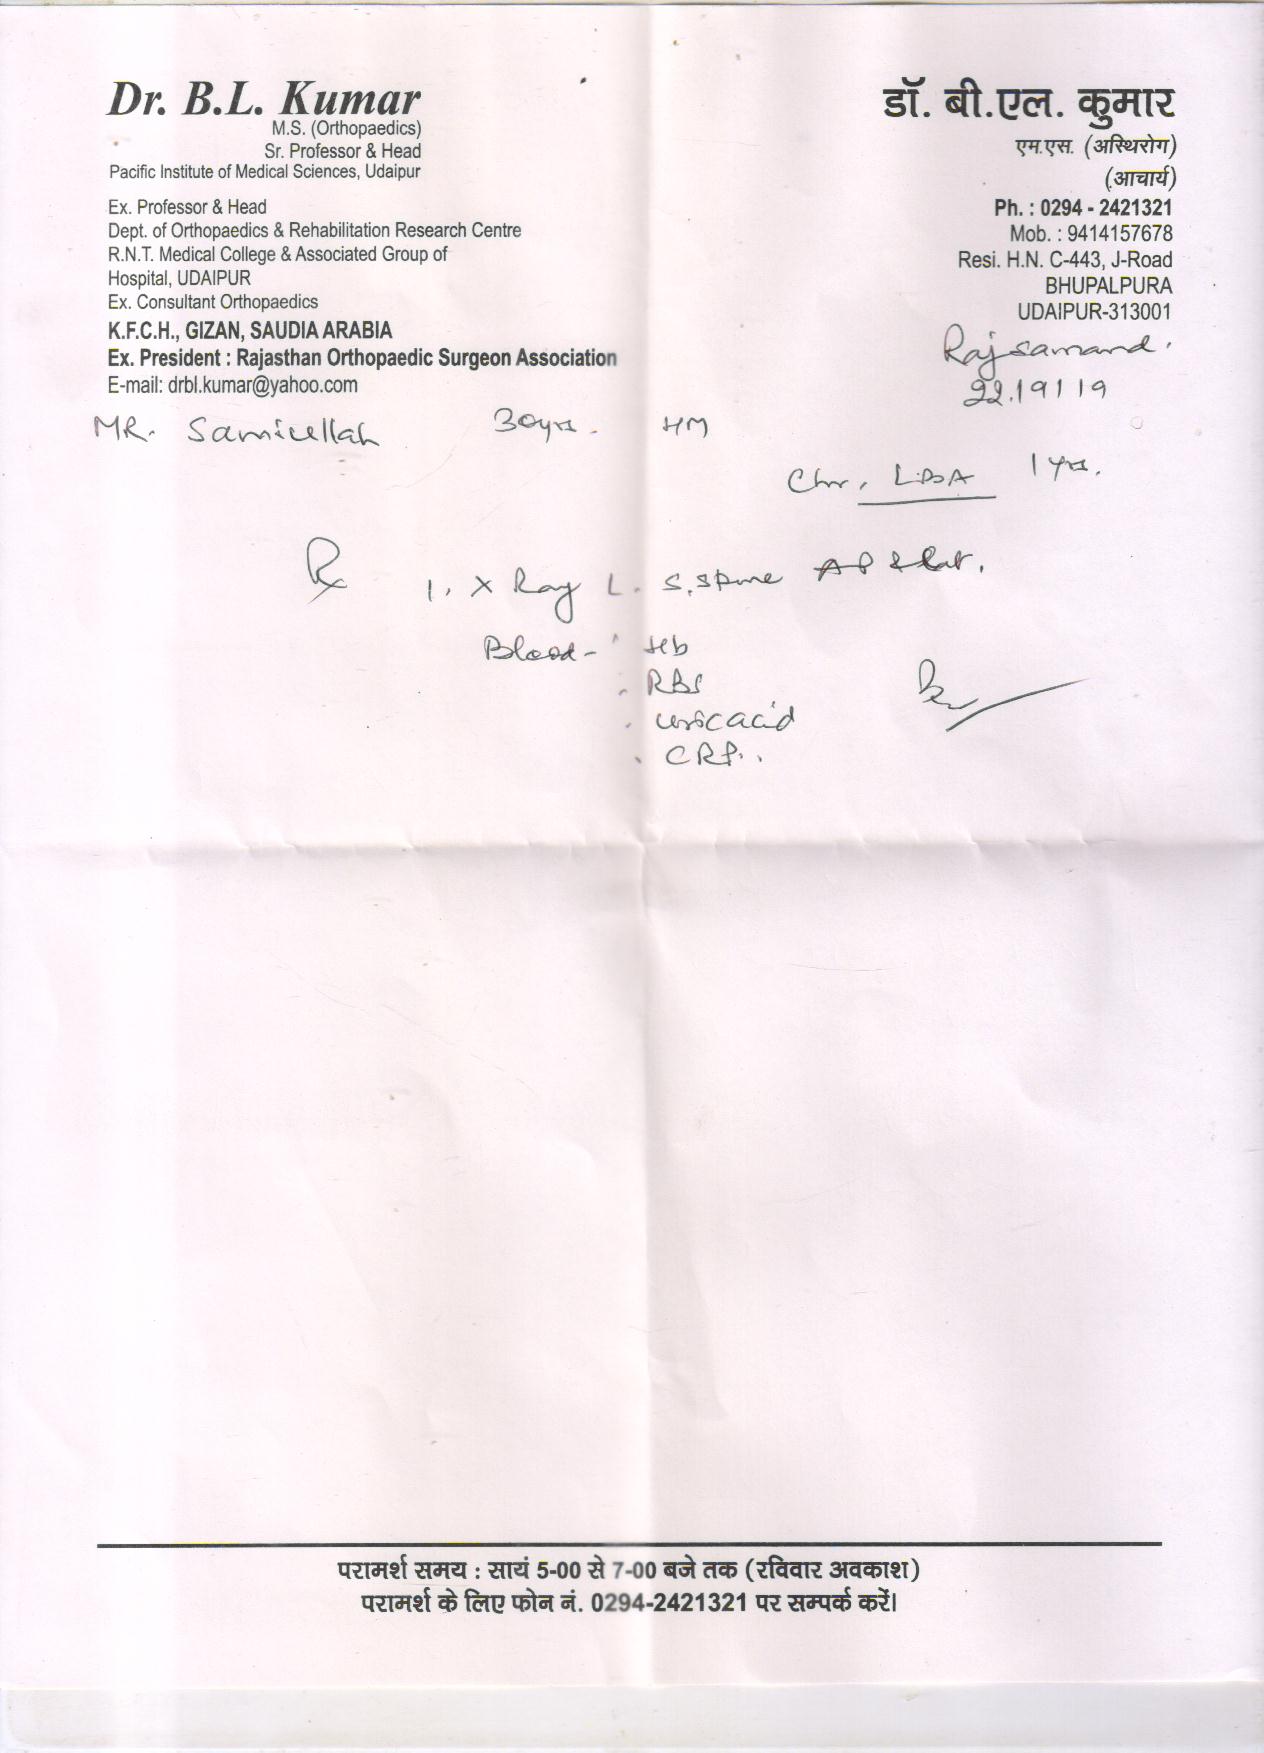 Dr. B.L. Kumar
M.S. (Orthopaedics)
Sr. Professor & Head
Pacific Institute of Medical Sciences, Udaipur
Ex. Professor & Head
Dept. of Orthopaedics & Rehabilitation Research Centre
R.N.T. Medical College & Associated Group of
Hospital, UDAIPUR
Ex. Consultant Orthopaedics
K.F.C.H., GIZAN, SAUDIA ARABIA
Ex. President : Rajasthan Orthopaedic Surgeon Association
E-mail: drbl.kumar@yahoo.com
डॉ. बी.एल. कुमार
एम.एस. (अस्थिरोग)
(आचार्य)
Ph. : 0294 - 2421321
Mob. : 9414157678
Resi. H.N. C-443, J-Road
BHUPALPURA
UDAIPUR-313001
Rajsamand.
22.19119
MR. Samiullah 30yrs. HM
Chr. LBA 1 yrs.
Rx 1. X Ray L. S. Spine AP & Lat.
Blood - Hb
RBS
uric acid
CRP..
परामर्श समय : सायं 5-00 से 7-00 बजे तक (रविवार अवकाश)
परामर्श के लिए फोन नं. 0294-2421321 पर सम्पर्क करें।